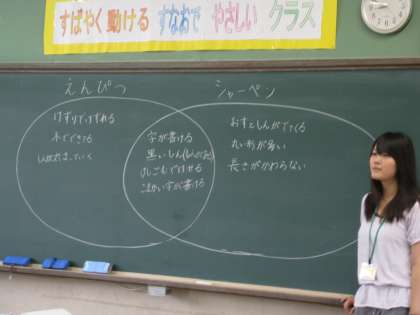 すばやく 動ける すなおで やさしい クラス
えんぴつ
けずりでけずれる
木でできてる
シャーペン
字が書ける
黒いしん
けしごむでけせる
こまかい字が書ける
おすとしんがでてくる
丸い形が多い
長さがかわらない